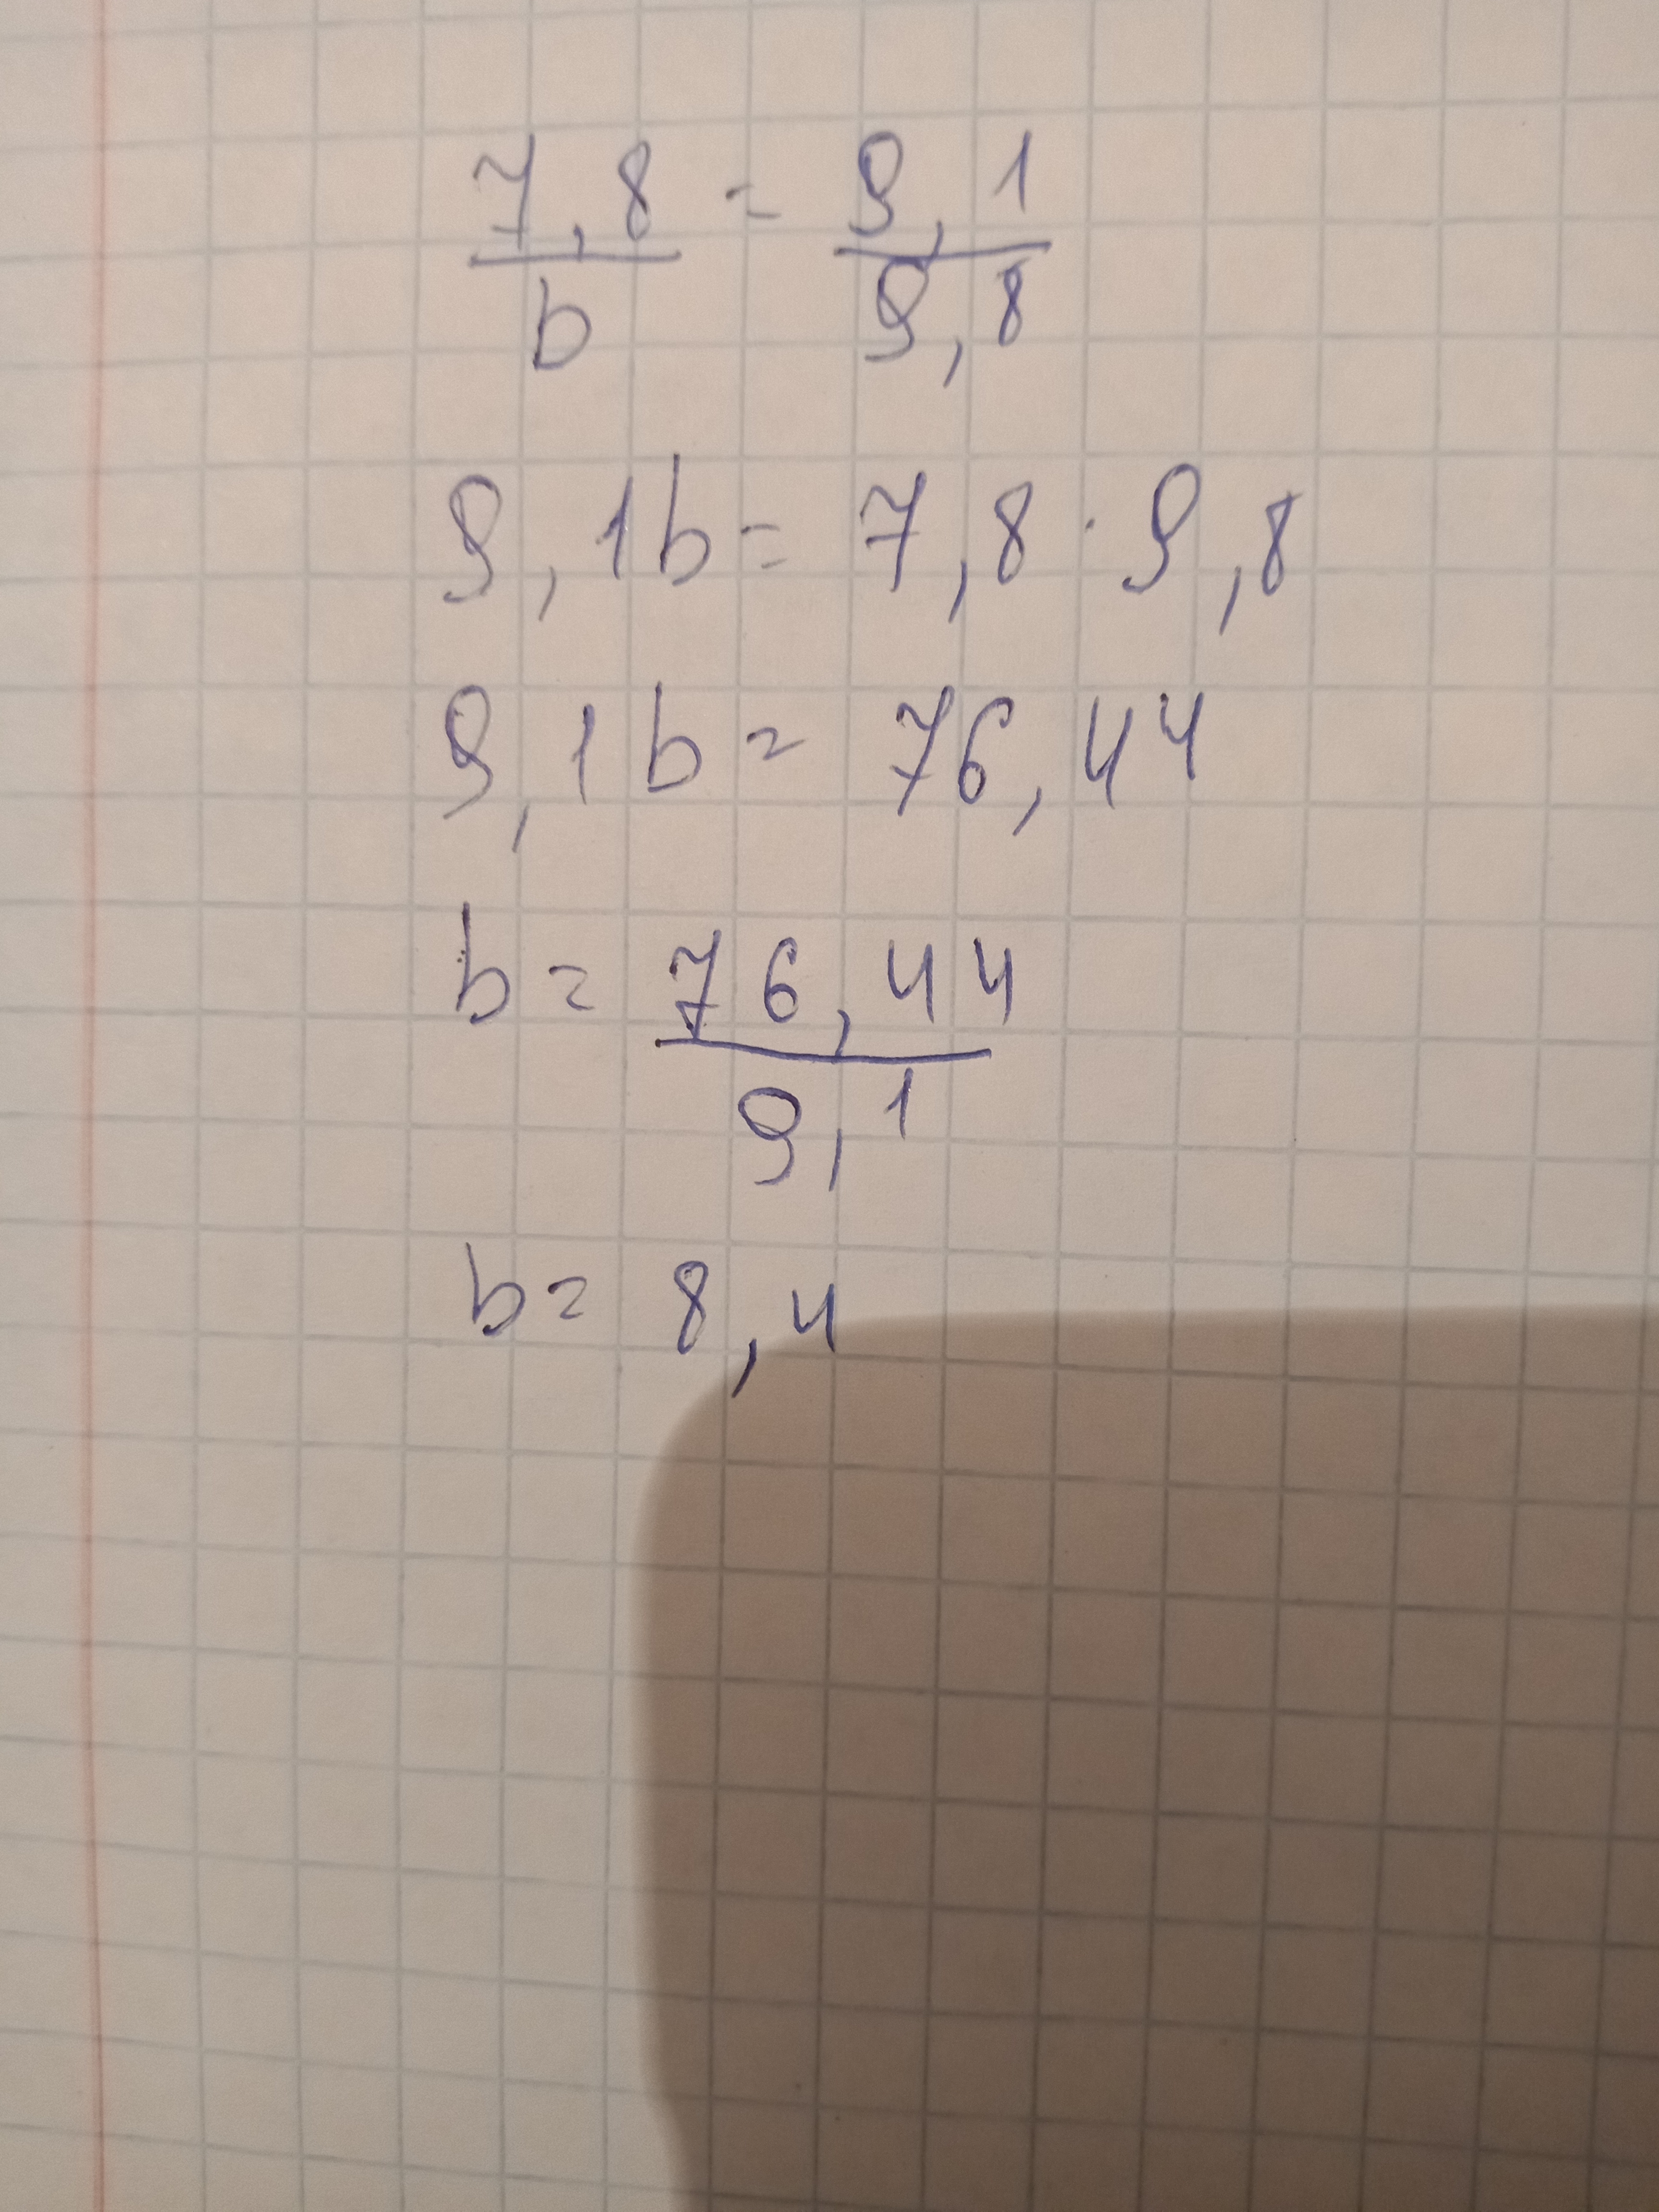 7,8 = 9,1
b 9,8
9,1b = 7,8 · 9,8
9,1b = 76,44
b = 76,44
9,1
b = 8,4